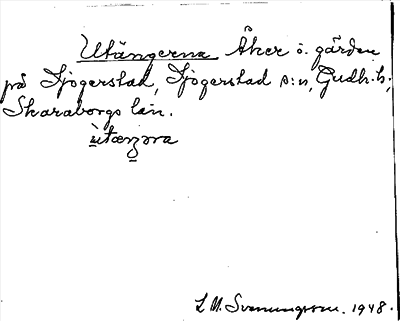 Utängerna Åker ö. gärden
på Sjogerstad, Sjogerstad s:n, Gudh. h;
Skaraborgs län.
ùtæŋəra
L. M. Svenungsson. 1948.